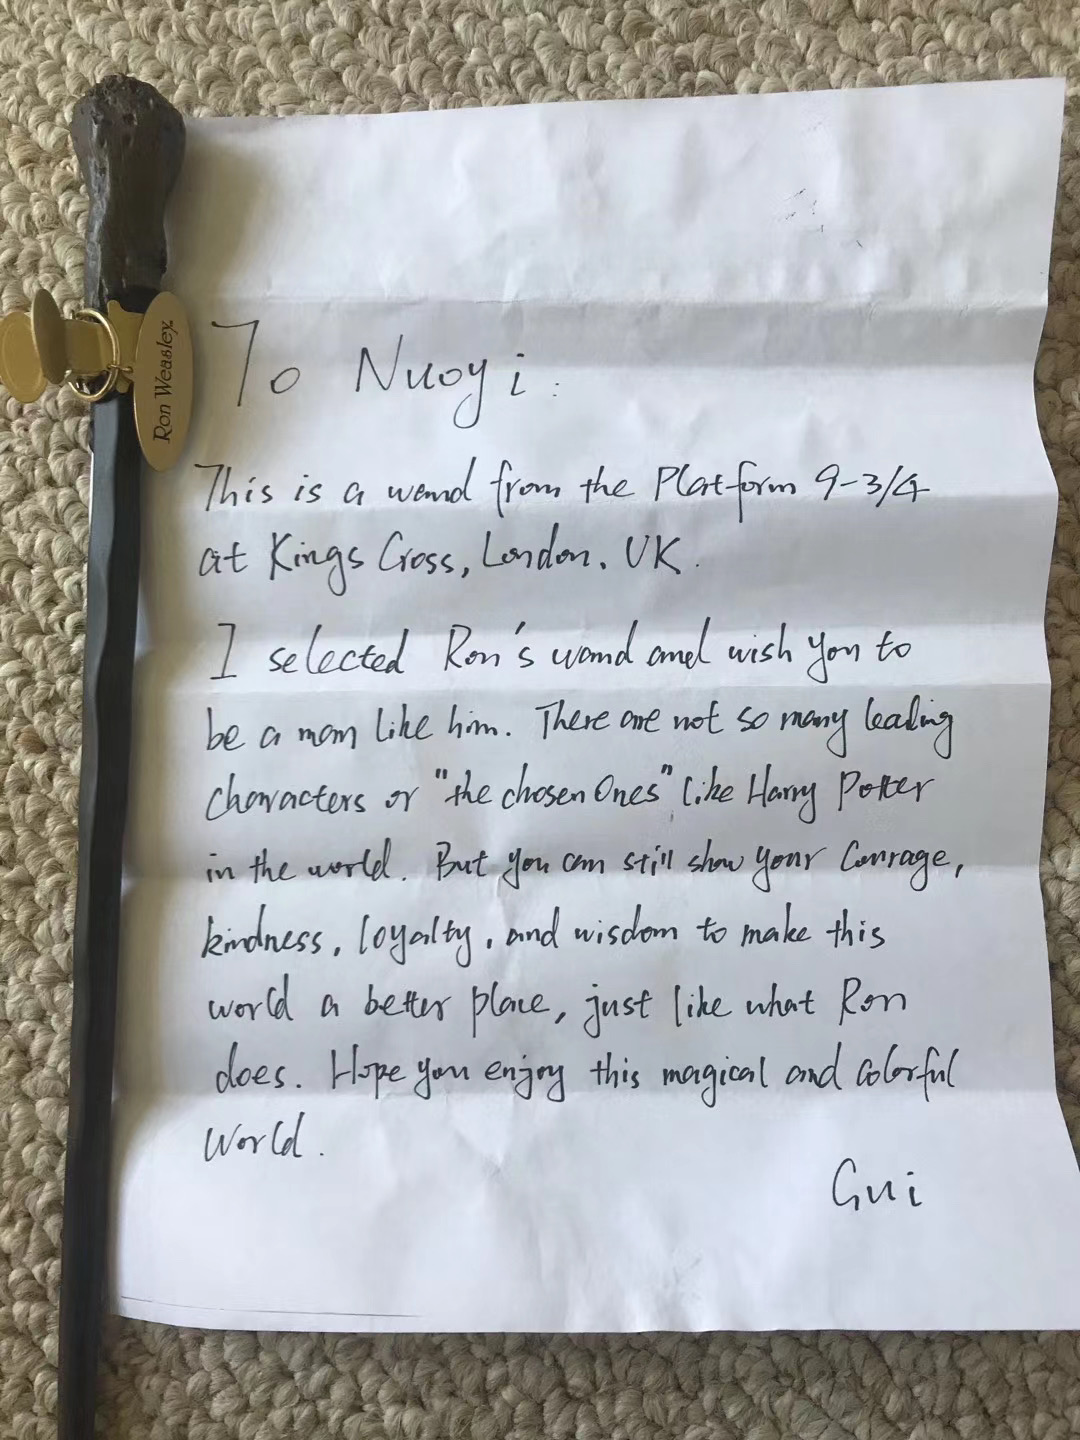 Ron Weasley
To Nuoyi:
This is a wand from the Platform 9-3/4
at Kings Cross, London, UK.
I selected Ron's wand and wish you to
be a man like him. There are not so many leading
characters or "the chosen Ones", like Harry Potter
in the world. But you can still show your Courage,
kindness, loyalty, and wisdom to make this
world a better place, just like what Ron
does. Hope you enjoy this magical and colorful
world.
Gui